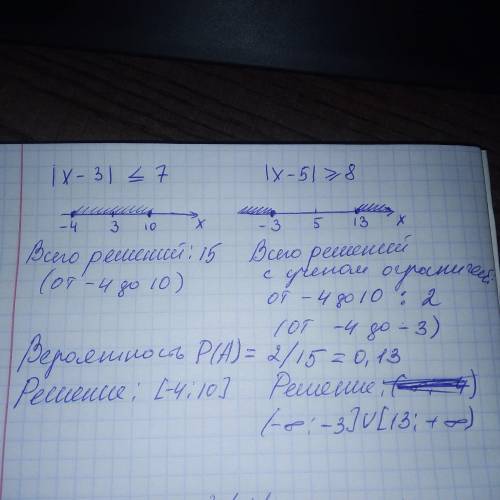 |x - 3| ≤ 7
|x - 5| ⩾ 8
-4 3 10 x
-3 5 13 x
Всего решений: 15
(от -4 до 10)
Всего решений
с учетом ограничений:
от -4 до 10 : 2
(от -4 до -3)
Вероятность P(A) = 2/15 = 0,13
Решение: [-4; 10]
Решение:
(-∞; -3] ∪ [13; +∞)